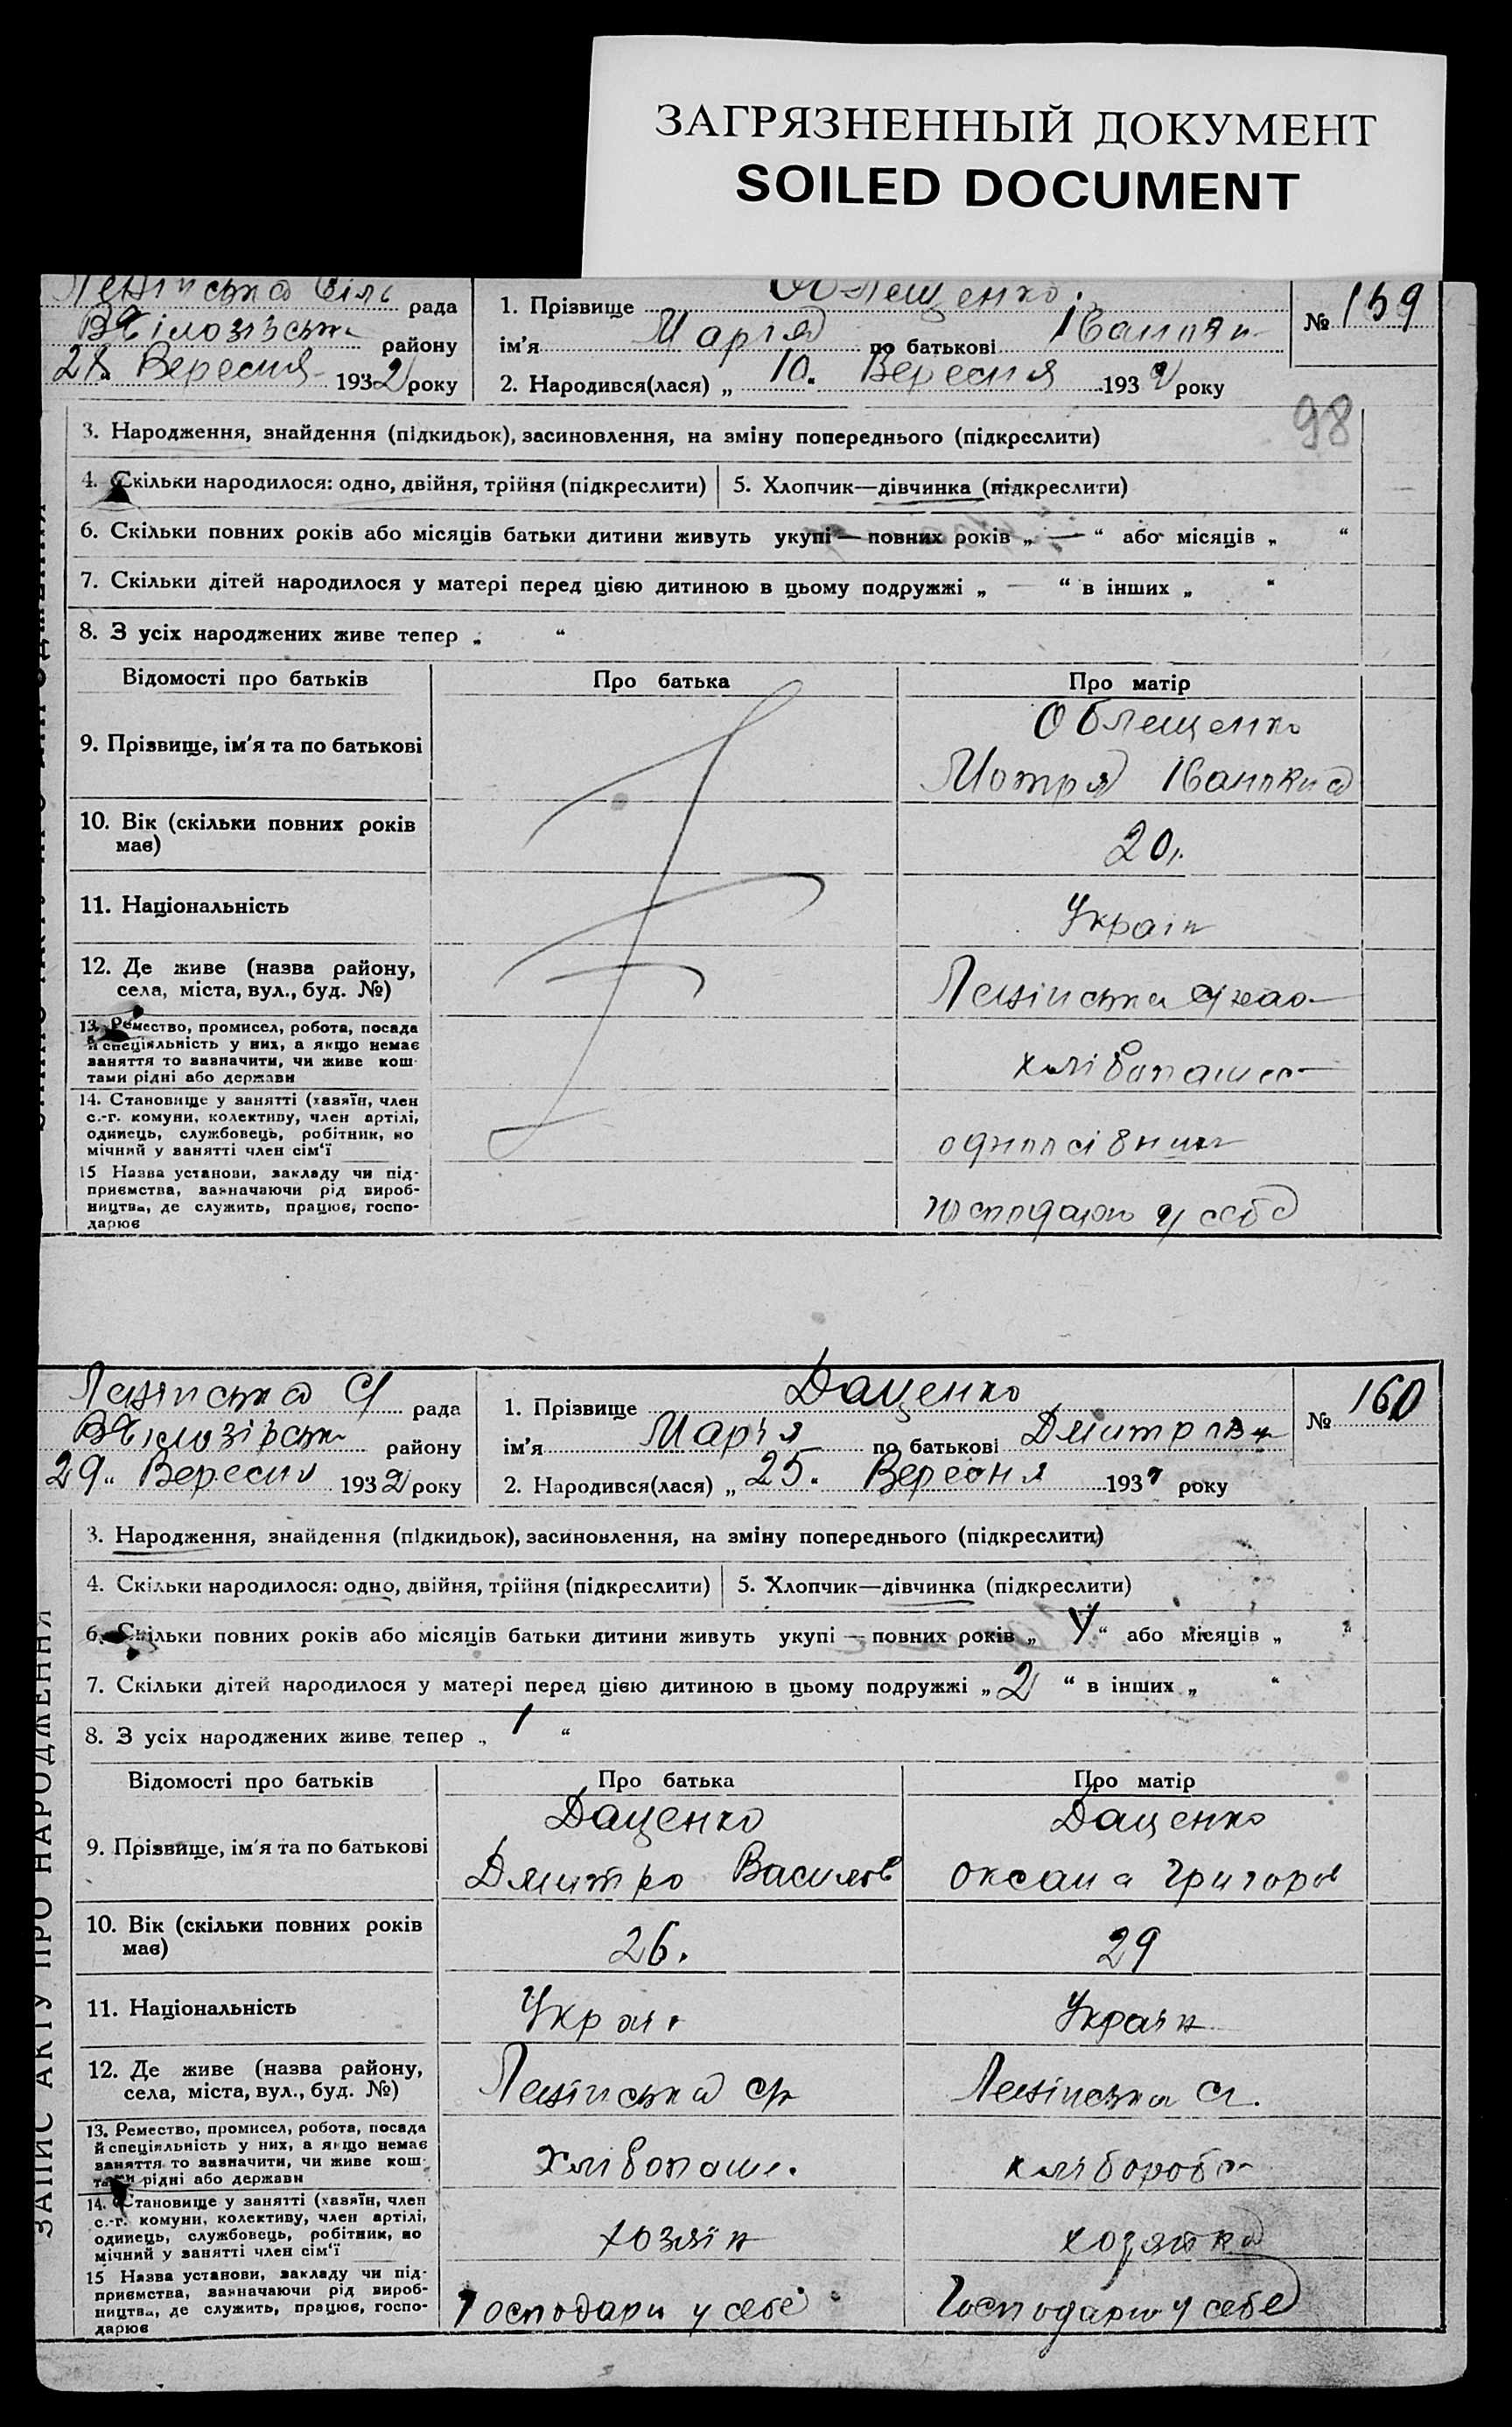 ЗАГРЯЗНЕННЫЙ ДОКУМЕНТ
SOILED DOCUMENT
рада
району
28 Вересня 1932 року
1. Прізвище Облещенко
ім'я Марія по батькові
2. Народився(лася) „ 10. Вересня 1932 року
№ 159
98
3. Народження, знайдення (підкидьок), засиновлення, на зміну попереднього (підкреслити)
4. Скільки народилося: одно, двійня, трійня (підкреслити) 5. Хлопчик—дівчинка (підкреслити)
6. Скільки повних років або місяців батьки дитини живуть укупі — повних років „ — “ або місяців „ “
7. Скільки дітей народилося у матері перед цією дитиною в цьому подружжі „ — “ в інших „ “
8. З усіх народжених живе тепер „ “
Відомості про батьків Про батька Про матір
9. Прізвище, ім'я та по батькові
Облещенко
Мотря
10. Вік (скільки повних років має)
20.
11. Національність
Україн
12. Де живе (назва району, села, міста, вул., буд. №)
13. Ремество, промисел, робота, посада
й спеціяльність у них, а якщо немає
заняття то зазначити, чи живе кош-
тами рідні або держави
14. Становище у занятті (хазяїн, член
с.-г. комуни, колективу, член артілі,
одинець, службовець, робітник, по
мічний у занятті член сім'ї
15 Назва установи, закладу чи під-
приємства, зазначаючи рід вироб-
ництва, де служить, працює, госпо-
дарює
у себе
рада
району
29. Вересня 1932 року
1. Прізвище Даценко
ім'я Марія по батькові
2. Народився(лася) „ 25. Вересня 193 року
№ 160
3. Народження, знайдення (підкидьок), засиновлення, на зміну попереднього (підкреслити)
4. Скільки народилося: одно, двійня, трійня (підкреслити) 5. Хлопчик—дівчинка (підкреслити)
6. Скільки повних років або місяців батьки дитини живуть укупі — повних років „ “ або місяців „ “
7. Скільки дітей народилося у матері перед цією дитиною в цьому подружжі „ 2 “ в інших „ “
8. З усіх народжених живе тепер „ 1 “
Відомості про батьків Про батька Про матір
9. Прізвище, ім'я та по батькові
Даценко Даценко
Дмитро Василів Оксана Григоров
10. Вік (скільки повних років має)
26. 29
11. Національність
Україн
12. Де живе (назва району, села, міста, вул., буд. №)
13. Ремество, промисел, робота, посада
й спеціяльність у них, а якщо немає
заняття то зазначити, чи живе кош-
тами рідні або держави
14. Становище у занятті (хазяїн, член
с.-г. комуни, колективу, член артілі,
одинець, службовець, робітник, по
мічний у занятті член сім'ї
хозяїн хозяйка
15 Назва установи, закладу чи під-
приємства, зазначаючи рід вироб-
ництва, де служить, працює, госпо-
дарює
Господари у себе Господарю у себе
ЗАПИС АКТУ ПРО НАРОДЖЕННЯ